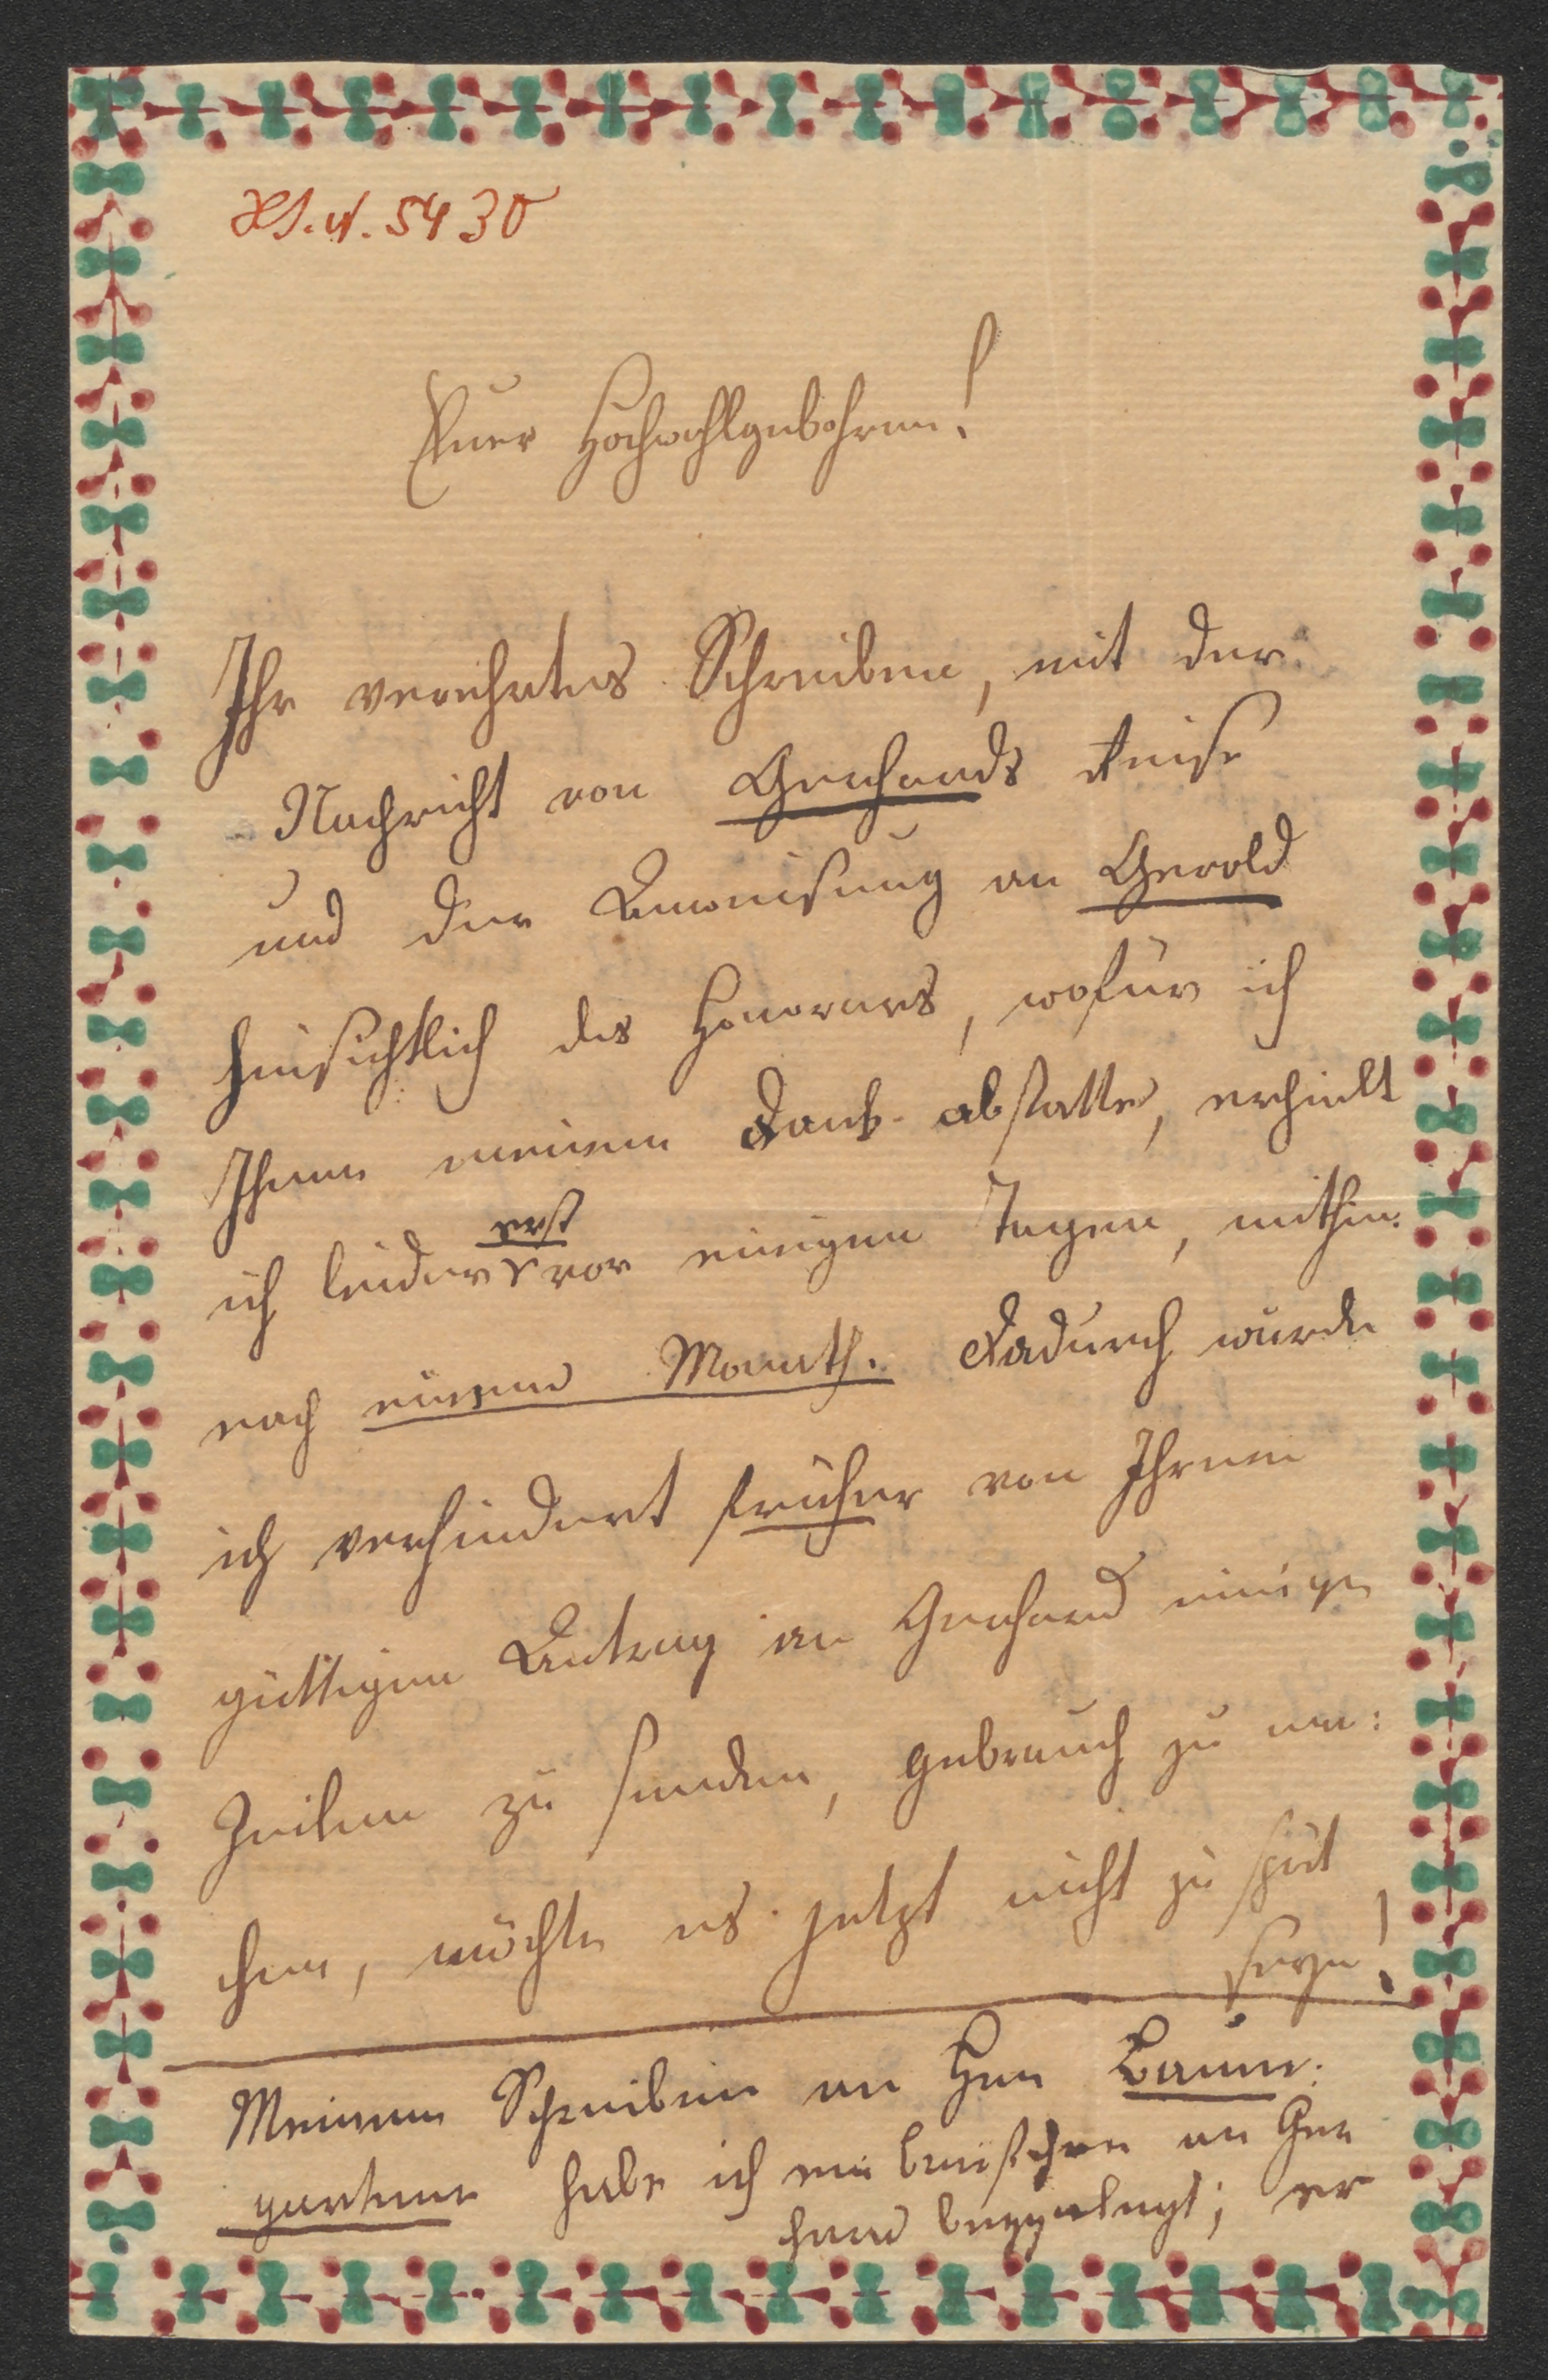 Hs. N. 5430
Euer Hochwohlgebohren!
Ihr verehrtes Schreiben, mit der
Nachricht von Genhards Reise
und der Anweisung an Gerold
hinsichtlich des Honorars, wofür ich
Ihnen meinen Dank abstatte, erhielt
ich leider erst vor einigen Tagen, mithin
nach einem Monath. Dadurch wurde
ich verhindert früher von Ihrem
güttigen Antrag an Genhard einige
Zeilen zu senden, gebrauch zu ma:
chen, möchte es jetzt nicht zu spät
seyn!
Meinem Schreiben an Hrn Baum:
gartner habe ich ein briefchen an Gen
hard beygelegt; er